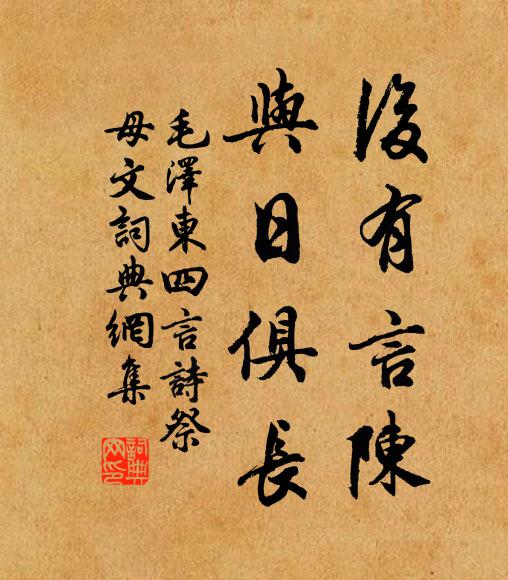 後有言陳
與日俱長
毛澤東四言詩祭
母文詞典網集
詞典
网印